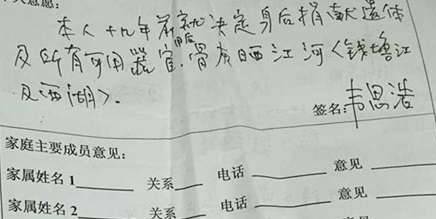 人意愿:
本人十九年前就决定身后捐献遗体
及所有可用器官,骨灰晒江河<钱塘江
及西湖>.
签名:韦思浩
家庭主要成员意见:
家属姓名1 关系 电话 意见
家属姓名2 关系 电话 意见